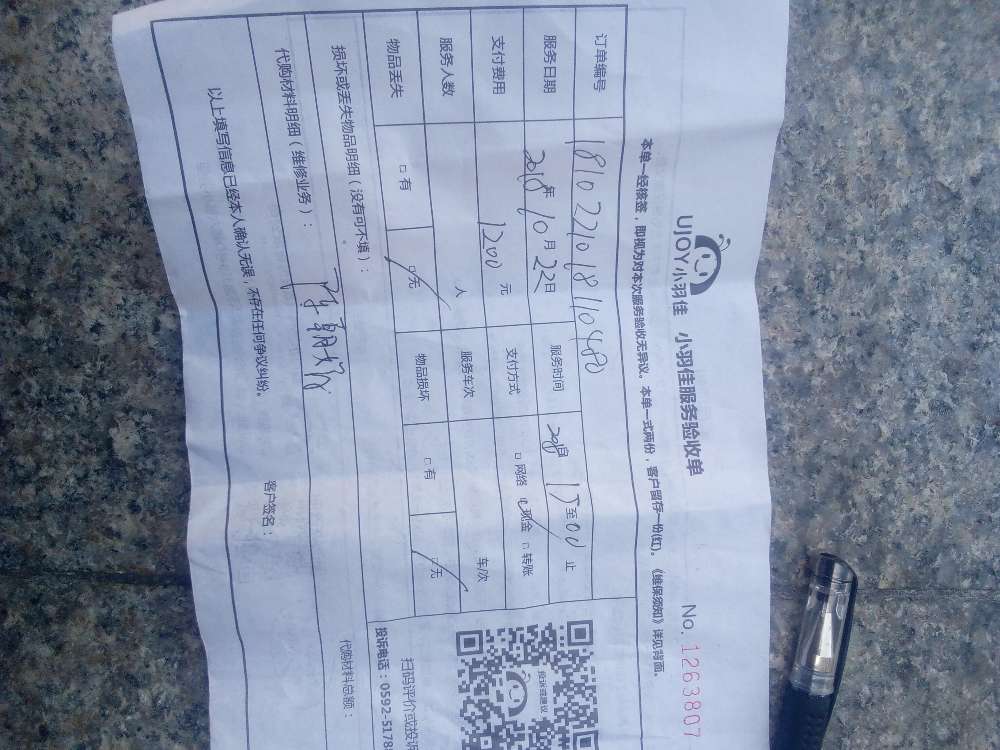 UJOY小羽佳 小羽佳服务验收单
No. 1263807
本单一经核签，即视为对本次服务验收无异议。本单一式两份，客户留存一份(红)。《维保须知》详见背面。
订单编号
服务日期 2018年10月22日 服务时间 自 至 止
支付费用 1200 元 支付方式 □网络 ☑现金 □转账
服务人数 人 服务车次 车/次
物品丢失 □有 ☑无 物品损坏 □有 ☑无
损坏或丢失物品明细（没有可不填）：
代购材料明细（维修业务）： 代购材料总额：
以上填写信息已经本人确认无误，不存在任何争议纠纷。 客户签名：
投诉或建议
扫码评价或投诉
投诉电话：0592-5178